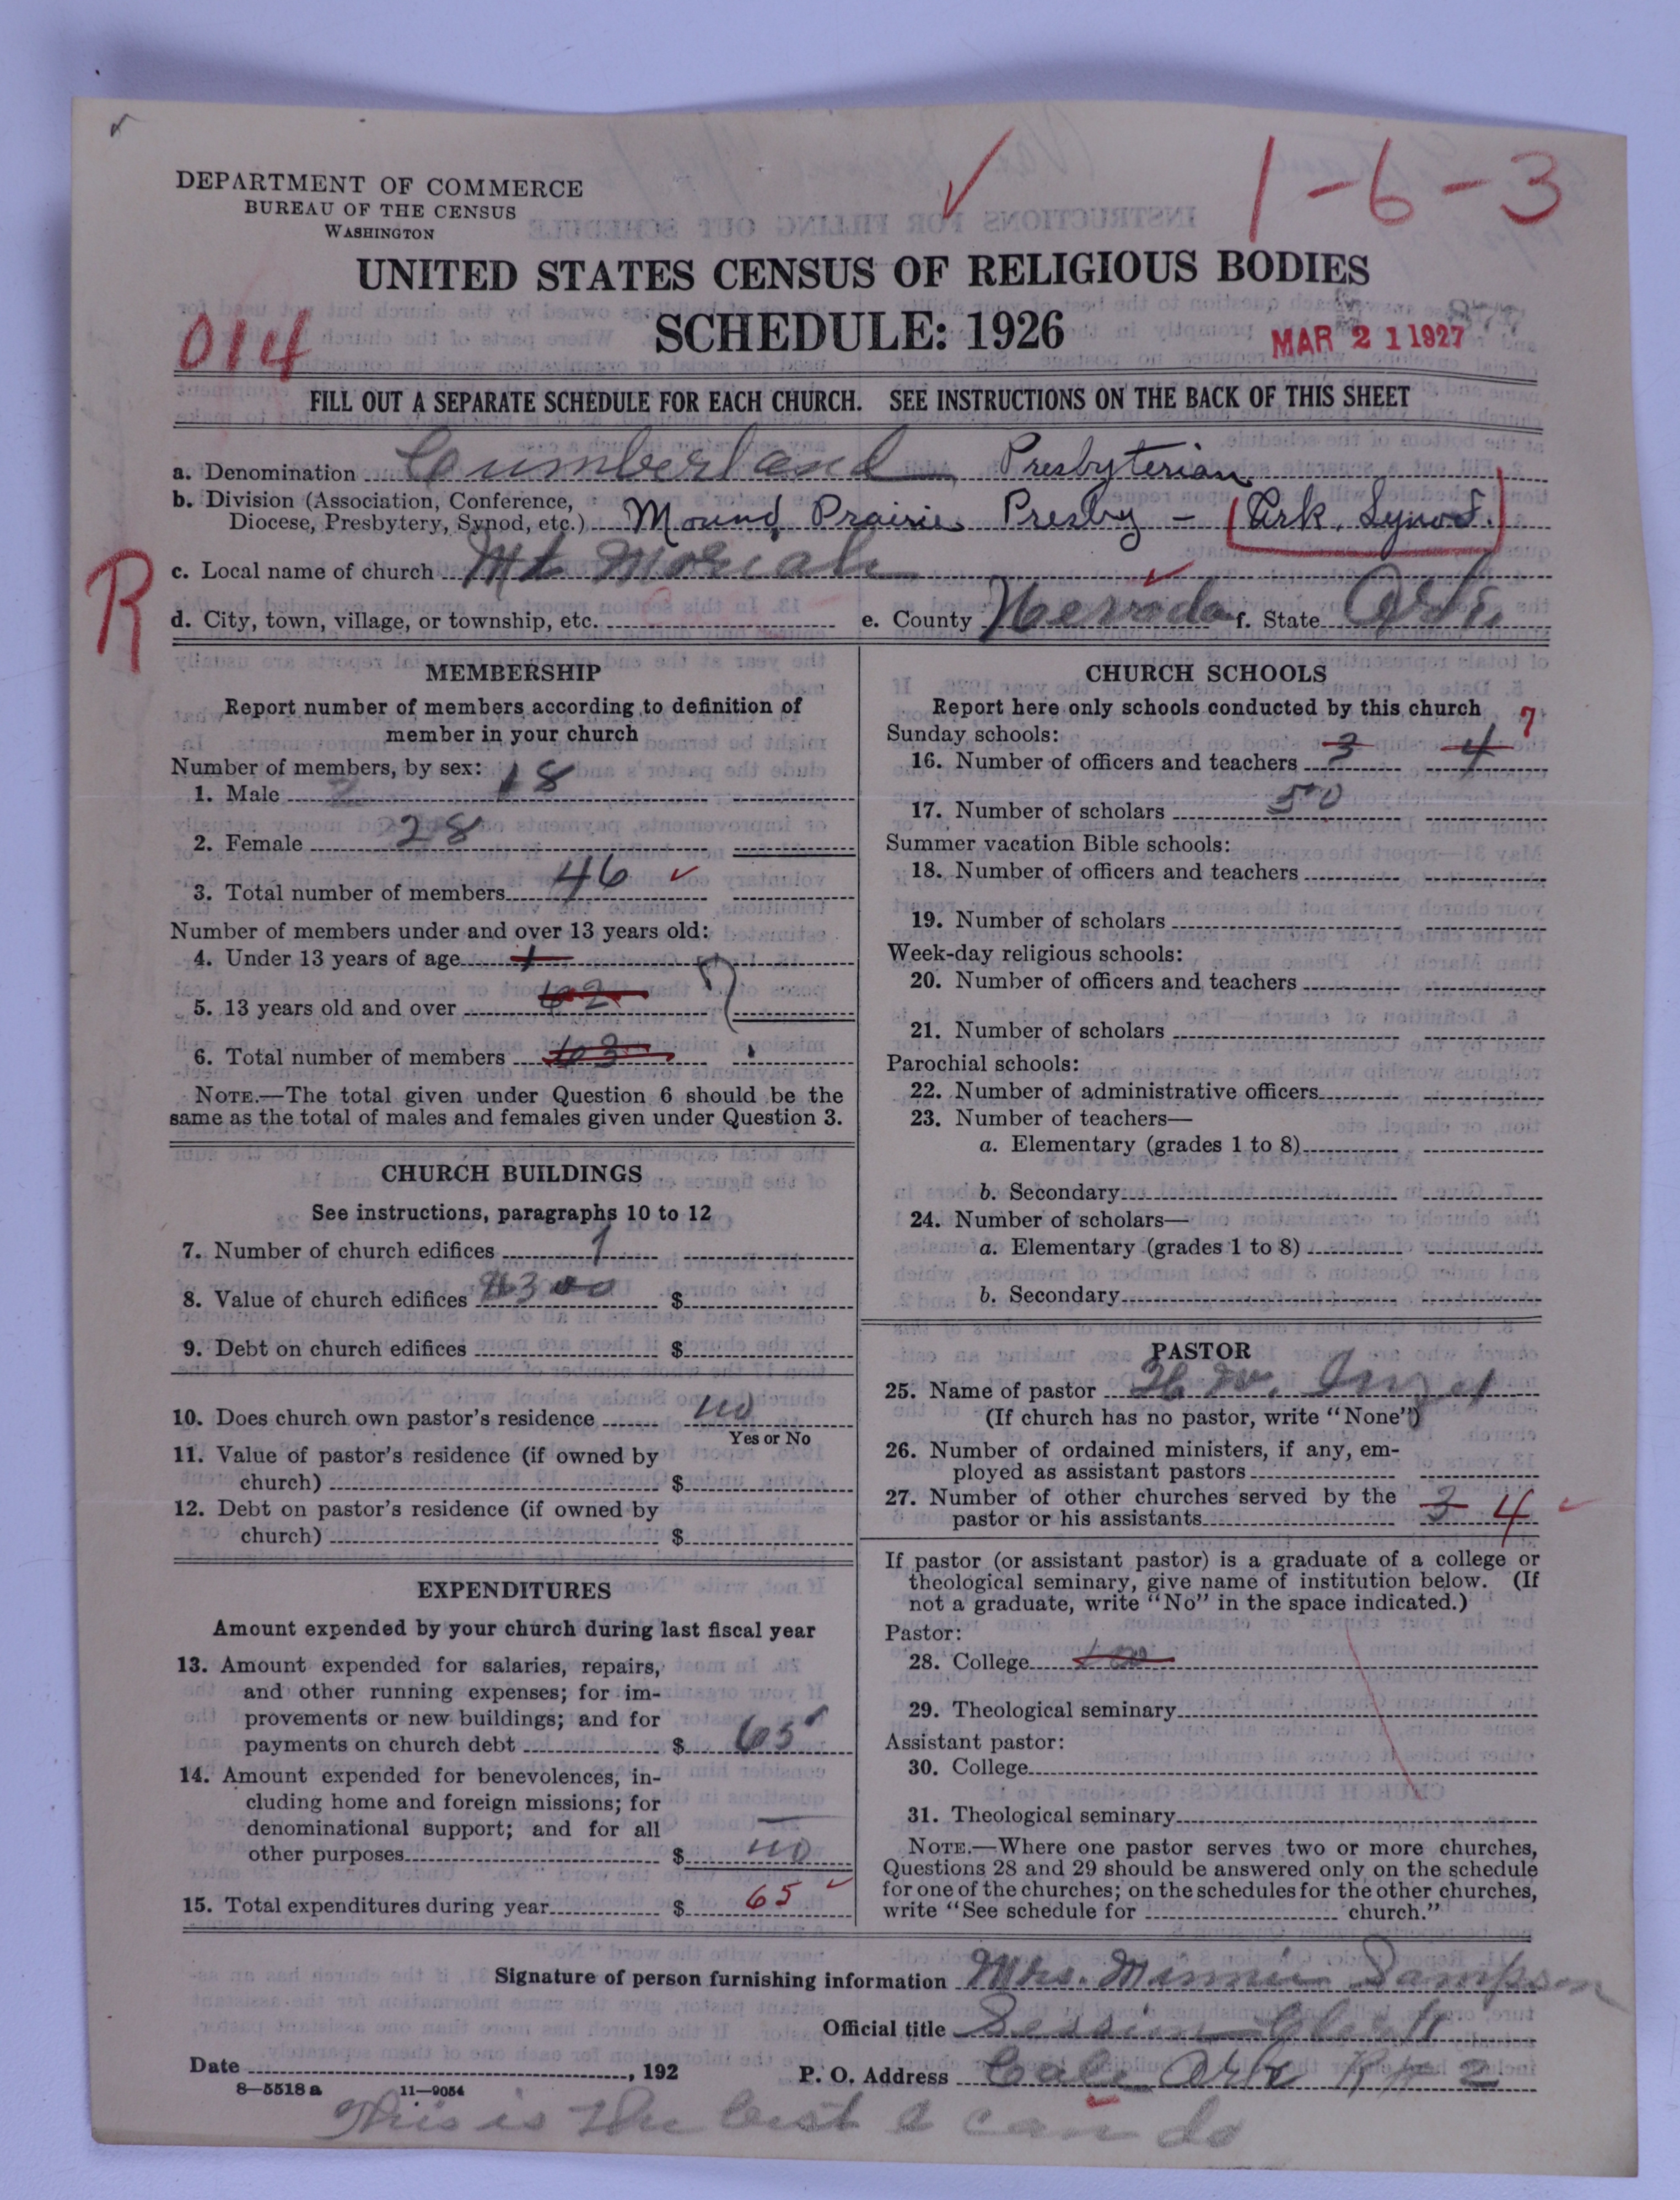 1-6-3
DEPARTMENT OF COMMERCE
BUREAU OF THE CENSUS
WASHINGTON
UNITED STATES CENSUS OF RELIGIOUS BODIES
SCHEDULE: 1926
014
MAR 21 1927
FILL OUT A SEPARATE SCHEDULE FOR EACH CHURCH. SEE INSTRUCTIONS ON THE BACK OF THIS SHEET
a. Denomination Cumberland Presbyterian
b. Division (Association, Conference,
Diocese, Presbytery, Synod, etc.) Mound Prairie Presby - (Ark. Synod.)
R
c. Local name of church Mt Moriah
d. City, town, village, or township, etc. e. County Nevada f. State Ark.
MEMBERSHIP
Report number of members according to definition of
member in your church
Number of members, by sex:
1. Male 18
2. Female 28
3. Total number of members 46
Number of members under and over 13 years old:
4. Under 13 years of age 1
5. 13 years old and over 62
6. Total number of members 63
NOTE.—The total given under Question 6 should be the
same as the total of males and females given under Question 3.
CHURCH BUILDINGS
See instructions, paragraphs 10 to 12
7. Number of church edifices 1
8. Value of church edifices $300 $
9. Debt on church edifices $
10. Does church own pastor's residence no
Yes or No
11. Value of pastor's residence (if owned by
church) $
12. Debt on pastor's residence (if owned by
church) $
EXPENDITURES
Amount expended by your church during last fiscal year
13. Amount expended for salaries, repairs,
and other running expenses; for im-
provements or new buildings; and for
payments on church debt $ 65
14. Amount expended for benevolences, in-
cluding home and foreign missions; for
denominational support; and for all
other purposes $ no
15. Total expenditures during year $ 65
CHURCH SCHOOLS
Report here only schools conducted by this church
Sunday schools: 7
16. Number of officers and teachers 3 4
17. Number of scholars 50
Summer vacation Bible schools:
18. Number of officers and teachers
19. Number of scholars
Week-day religious schools:
20. Number of officers and teachers
21. Number of scholars
Parochial schools:
22. Number of administrative officers
23. Number of teachers—
a. Elementary (grades 1 to 8)
b. Secondary
24. Number of scholars—
a. Elementary (grades 1 to 8)
b. Secondary
PASTOR
25. Name of pastor
(If church has no pastor, write "None")
26. Number of ordained ministers, if any, em-
ployed as assistant pastors
27. Number of other churches served by the
pastor or his assistants 3 4
If pastor (or assistant pastor) is a graduate of a college or
theological seminary, give name of institution below. (If
not a graduate, write "No" in the space indicated.)
Pastor:
28. College
29. Theological seminary
Assistant pastor:
30. College
31. Theological seminary
NOTE.—Where one pastor serves two or more churches,
Questions 28 and 29 should be answered only on the schedule
for one of the churches; on the schedules for the other churches,
write "See schedule for church."
Signature of person furnishing information Mrs. Minnie Sampson
Official title Session Clerk
Date , 192 P. O. Address Cale Ark R# 2
8—5518a 11—9054
This is the best I can do